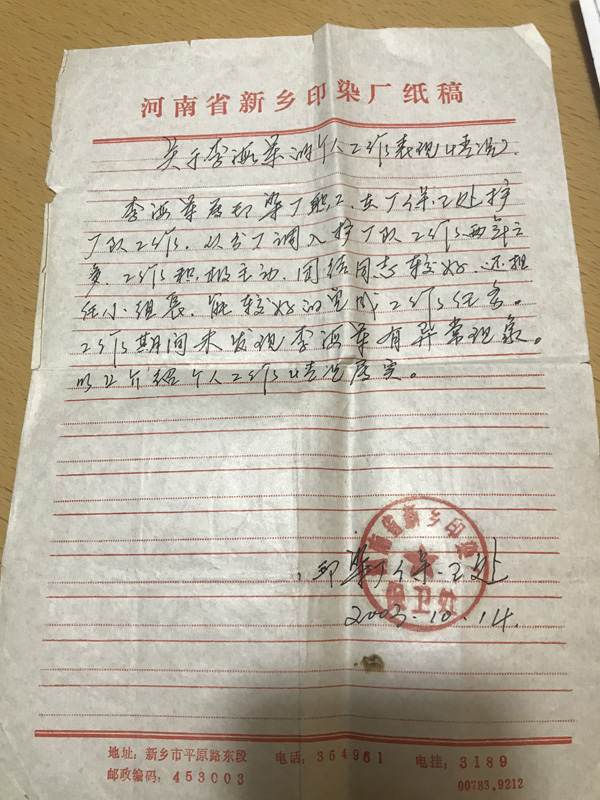 河南省新乡印染厂纸稿
关于李海军的个人工作表现情况
李海军属印染厂职工.在厂保卫处护
厂队工作.从分厂调入护厂队工作两年之
多.工作积极主动.团结同志较好.还担
任小组长.能较好的完成工作任务。
工作期间未发现李海军有异常现象。
以上介绍个人工作情况属实。
河南省新乡印染厂
保卫处
印染厂保卫处
2003.10.14.
地址：新乡市平原路东段 电话：354961 电挂：3189
邮政编码：453003 00783.9212